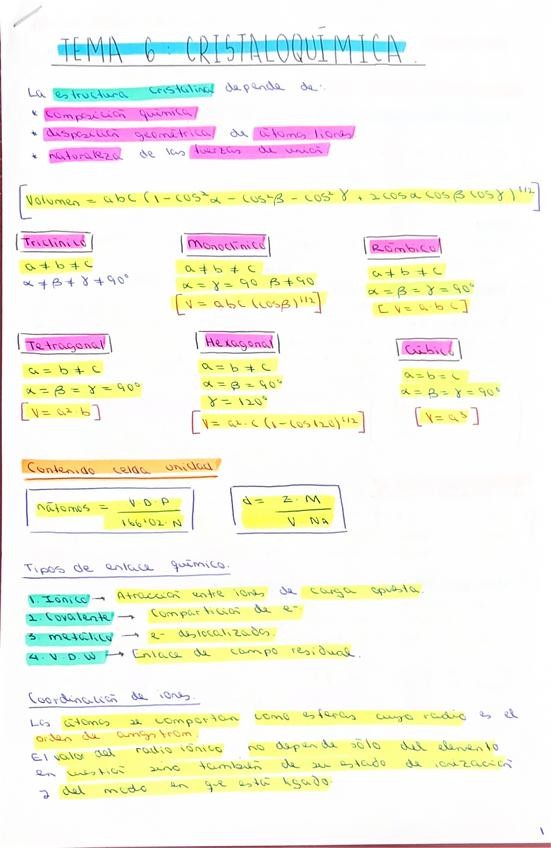 TEMA 6: CRISTALOQUÍMICA.
La estructura cristalina depende de:
* composición química
* disposición geométrica de átomos/iones
* naturaleza de las fuerzas de unión
[Volumen = abc (1 - cos² α - cos² β - cos² γ + 2 cos α cos β cos γ)^1/2]
Triclínico Monoclínico Rómbico
a ≠ b ≠ c a ≠ b ≠ c a ≠ b ≠ c
α ≠ β ≠ γ ≠ 90° α = γ = 90 β ≠ 90 α = β = γ = 90°
[V = abc (cos β)^1/2] [V = a·b·c]
Tetragonal Hexagonal Cúbico
a = b ≠ c a = b ≠ c a = b = c
α = β = γ = 90° α = β = 90° α = β = γ = 90°
[V = a²·b] γ = 120° [V = a³]
[V = a²·c (1 - cos 120)^1/2]
Contenido celda unidad
nátomos = V·D·P / 166'02·N d = Z·M / V·Na
Tipos de enlace químico.
1. Iónico → Atracción entre iones de carga opuesta.
2. Covalente → Compartición de e⁻
3. Metálico → e⁻ deslocalizados.
4. V.D.W → Enlace de campo residual.
Coordinación de iones.
Los átomos se comportan como esferas cuyo radio es el
orden de angstrom.
El valor del radio iónico no depende sólo del elemento
en cuestión sino también de su estado de ionización
y del modo en que está ligado.
1